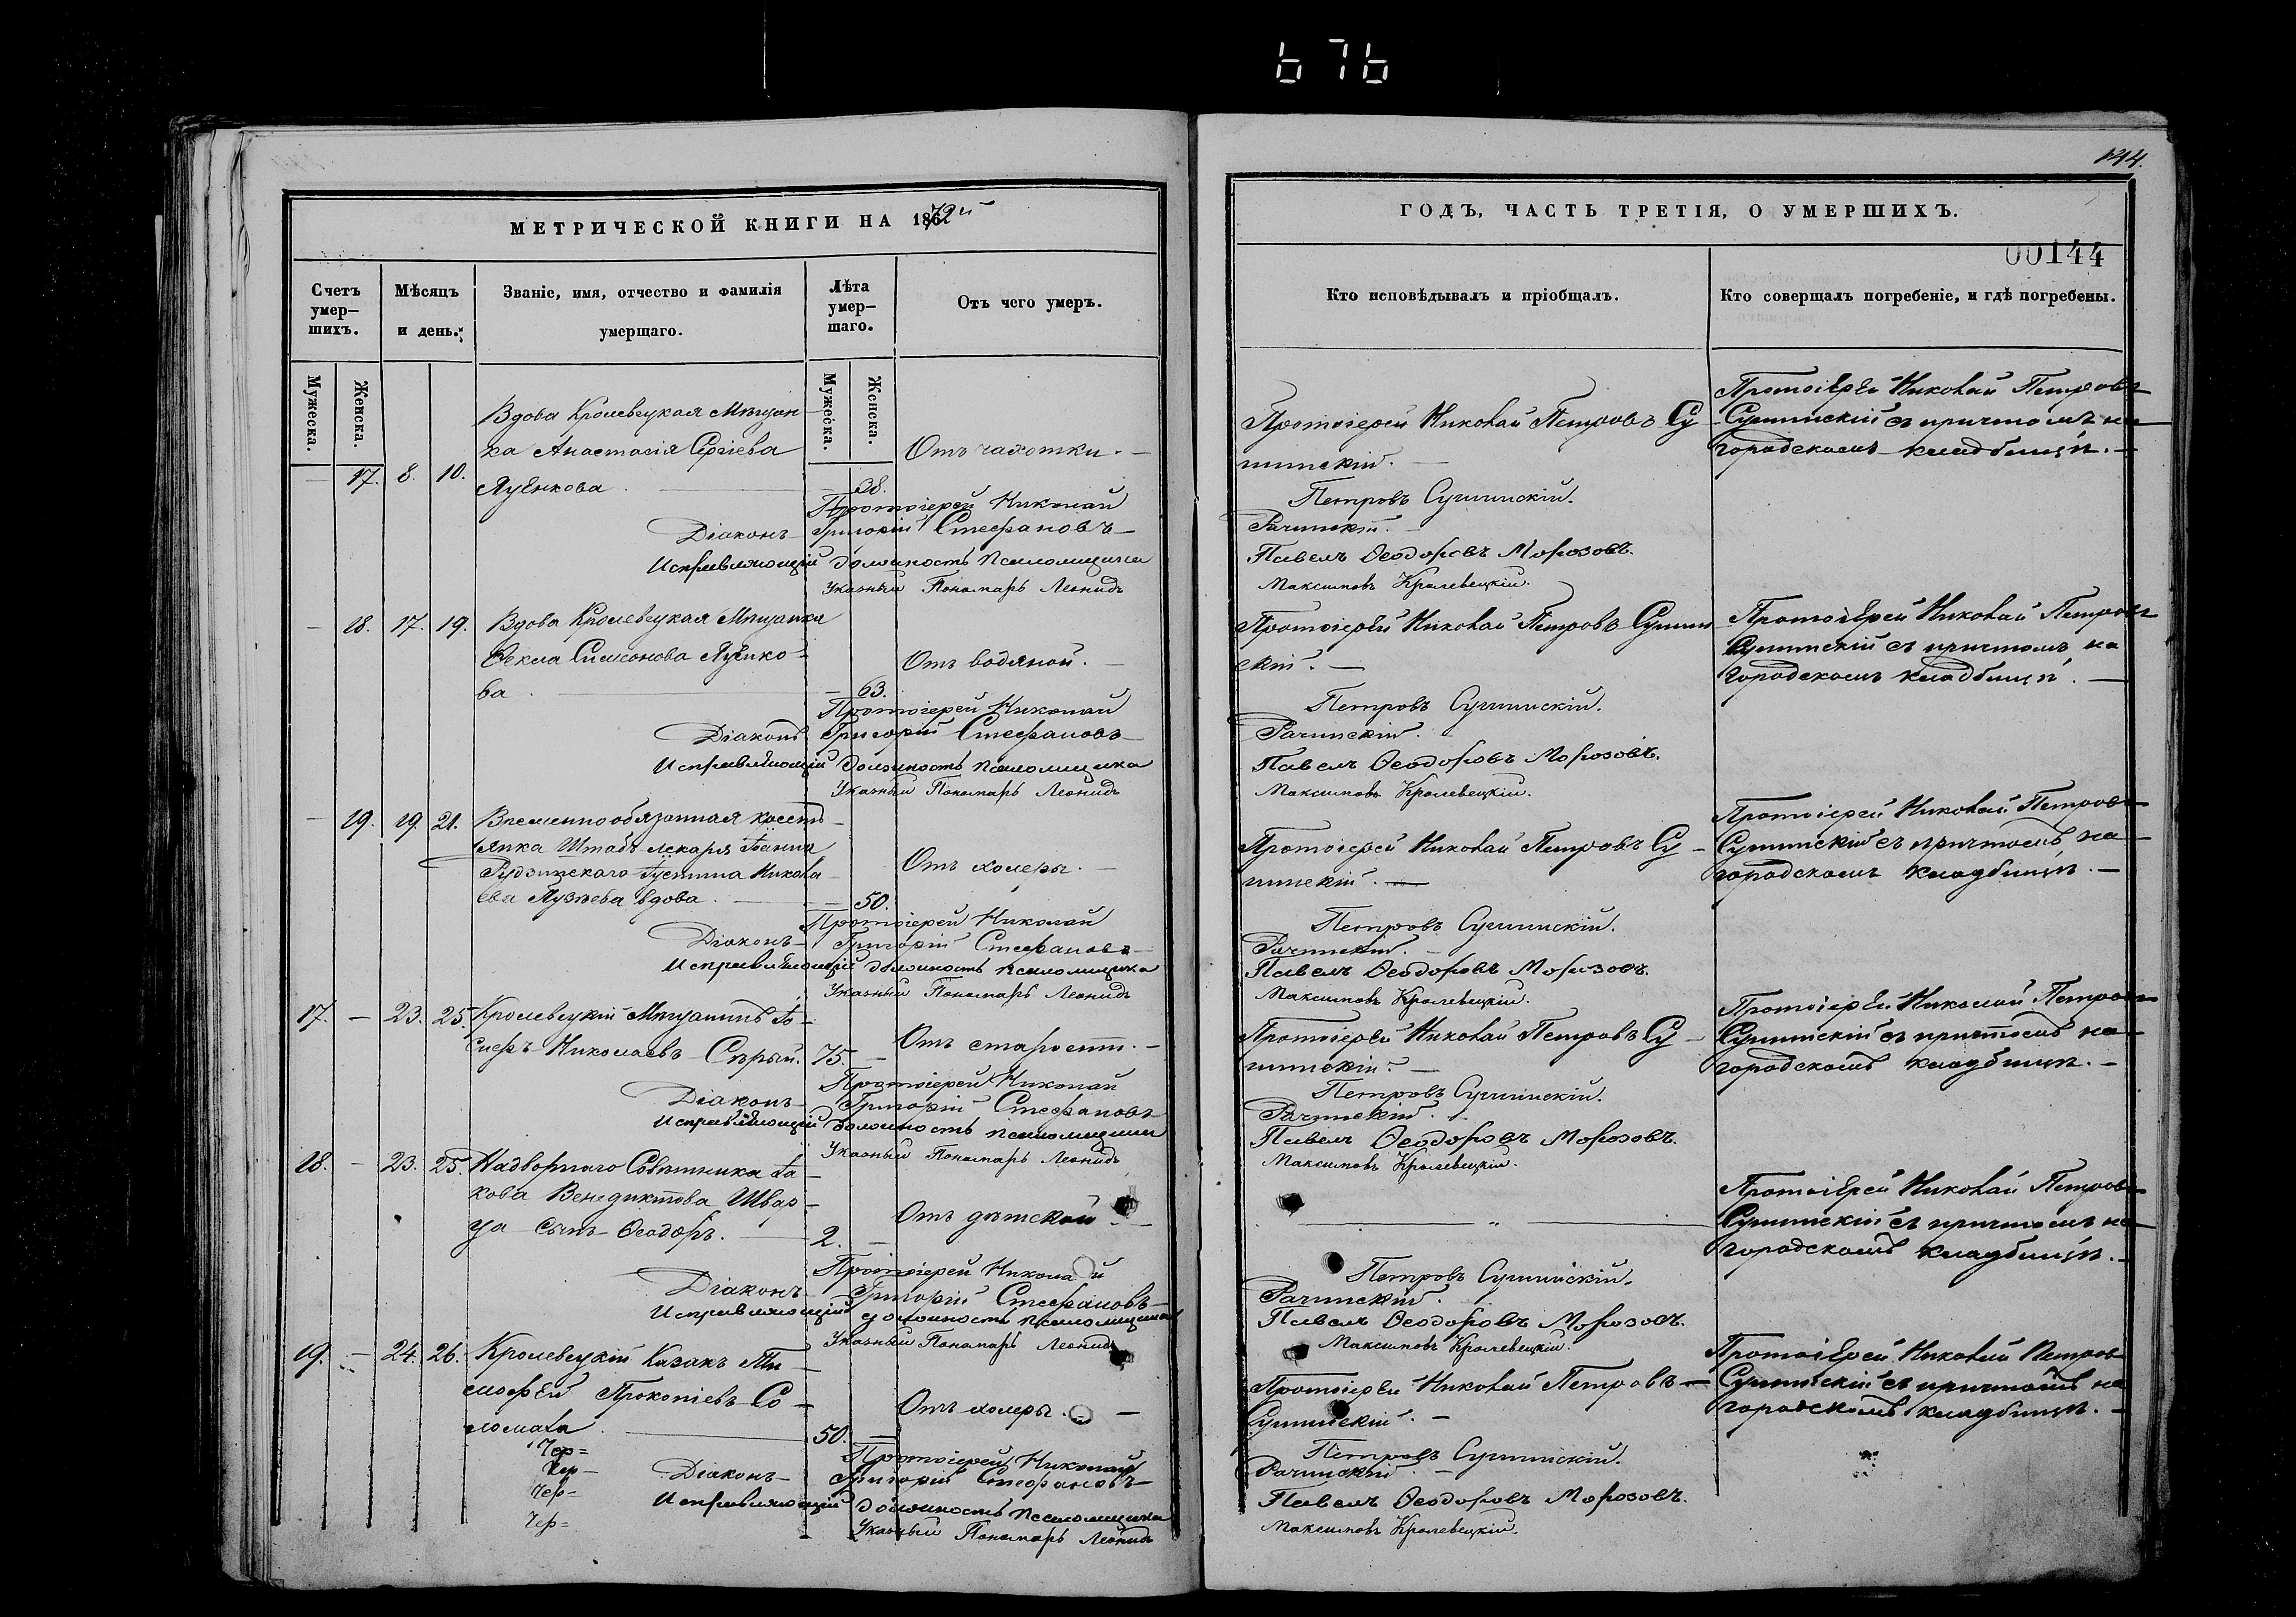 676
МЕТРИЧЕСКОЙ КНИГИ НА 1872й
Счетъ умер-шихъ.
Мѣсяцъ и день.
Званіе, имя, отчество и фамилія умершаго.
Лѣта умер-шаго.
Отъ чего умеръ.
Мужеска.
Женска.
Мужеска.
Женска.
Вдова Кролевецкая Мѣщан-
— 17. 8. 10. ка Анастасія Сергіева Отъ чахотки. —
Яценкова —
Протоіерей Николай
Діаконъ Григорій Стефановъ
Исправляющій должность псаломщика
Указный Пономарь Леонидъ
— 18. 17. 19. Вдова Кролевецкая Мѣщанка
Ѳекла Симеонова Яценко- Отъ водяной. —
ва — 63.
Протоіерей Николай
Діаконъ Григорій Стефановъ
Исправляющій должность псаломщика
Указный Пономарь Леонидъ
— 19. 19. 21. Временнообязанная крестъ-
янка Штабъ-лекаря Іоанна
Рудзинскаго Іустина Никола- Отъ холеры. —
ева вдова — 50.
Протоіерей Николай
Діаконъ Григорій Стефановъ
Исправляющій должность псаломщика
Указный Пономарь Леонидъ
17. — 23. 25. Кролевецкій Мѣщанинъ Іо-
сифъ Николаевъ Сѣрый. 75. — Отъ старости. —
Протоіерей Николай
Діаконъ Григорій Стефановъ
Исправляющій должность псаломщика
Указный Пономарь Леонидъ
18. — 23. 25. Надворнаго Совѣтника Іа-
кова Венедиктова Швар- Отъ дѣтской —
ца сынъ Ѳеодоръ. — 2. —
Протоіерей Николай
Діаконъ Григорій Стефановъ
Исправляющій должность псаломщика
Указный Пономарь Леонидъ
19. — 24. 26. Кролевецкій Казакъ Ти-
моѳей Прокопіевъ Со- Отъ холеры. —
ломаха — 50. —
Протоіерей Николай
Діаконъ Григорій Стефановъ
Исправляющій должность псаломщика
Указный Пономарь Леонидъ
144.
ГОДЪ, ЧАСТЬ ТРЕТІЯ, О УМЕРШИХЪ.
00144
Кто исповѣдывалъ и пріобщалъ.
Кто совершалъ погребеніе, и гдѣ погребены.
Протоіерей Николай Петровъ Су-
шинскій. —
Протоіерей Николай Петровъ
Сушинскій съ причтомъ на
городскомъ кладбищѣ. —
Петровъ Сушинскій.
Рачинскій.
Павелъ Ѳеодоровъ Морозовъ.
Максимовъ Кролевецкій.
Протоіерей Николай Петровъ Сушин-
скій. —
Протоіерей Николай Петровъ
Сушинскій съ причтомъ на
городскомъ кладбищѣ. —
Петровъ Сушинскій.
Рачинскій.
Павелъ Ѳеодоровъ Морозовъ.
Максимовъ Кролевецкій.
Протоіерей Николай Петровъ Су-
шинскій. —
Протоіерей Николай Петровъ
Сушинскій съ причтомъ на
городскомъ кладбищѣ. —
Петровъ Сушинскій.
Рачинскій.
Павелъ Ѳеодоровъ Морозовъ.
Максимовъ Кролевецкій.
Протоіерей Николай Петровъ Су-
шинскій. —
Протоіерей Николай Петровъ
Сушинскій съ причтомъ на
городскомъ кладбищѣ. —
Петровъ Сушинскій.
Рачинскій.
Павелъ Ѳеодоровъ Морозовъ.
Максимовъ Кролевецкій.
— „ —
Протоіерей Николай Петровъ
Сушинскій съ причтомъ на
городскомъ кладбищѣ. —
Петровъ Сушинскій.
Рачинскій.
Павелъ Ѳеодоровъ Морозовъ.
Максимовъ Кролевецкій.
Протоіерей Николай Петровъ
Сушинскій. —
Протоіерей Николай Петровъ
Сушинскій съ причтомъ на
городскомъ кладбищѣ. —
Петровъ Сушинскій.
Рачинскій.
Павелъ Ѳеодоровъ Морозовъ.
Максимовъ Кролевецкій.